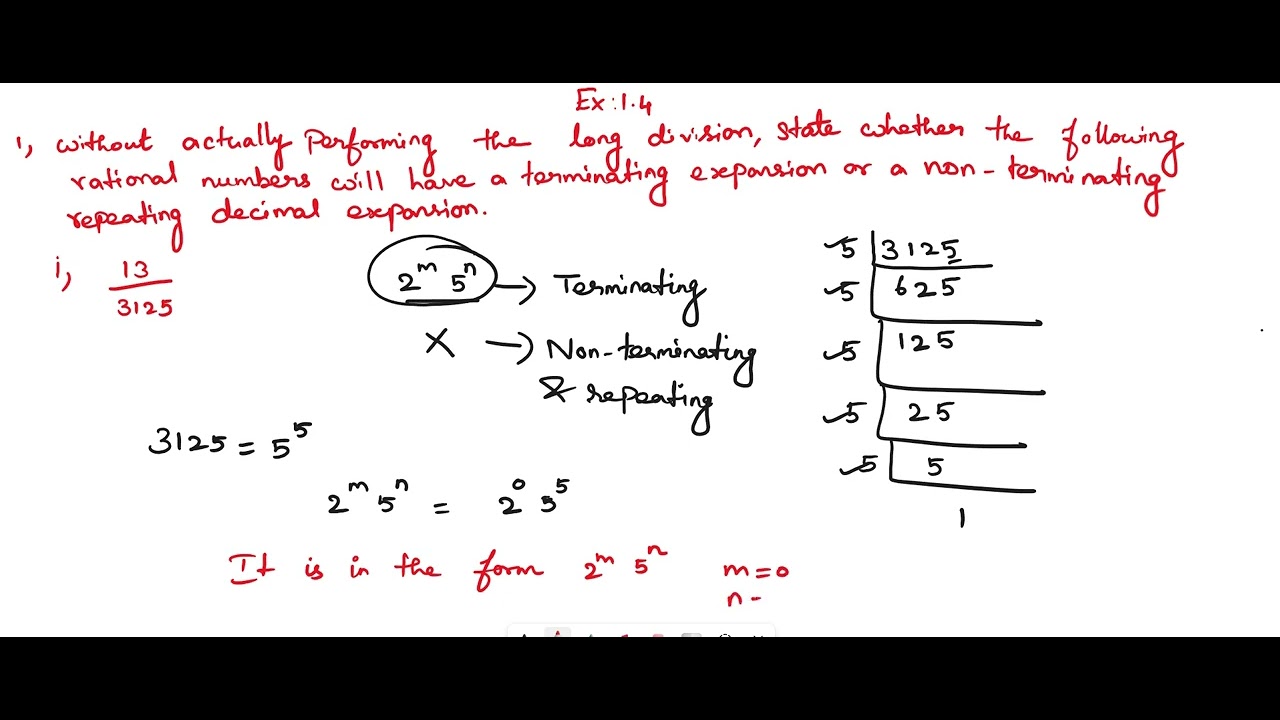 Ex: 1.4
1, without actually Performing the long division, state whether the following
rational numbers will have a terminating expansion or a non-terminating
repeating decimal expansion.
i, 13/3125
2^m 5^n → Terminating
X → Non-terminating
& repeating
3125 = 5^5
2^m 5^n = 2^0 5^5
It is in the form 2^m 5^n m = 0
n -
5 | 3125
5 | 625
5 | 125
5 | 25
5 | 5
1